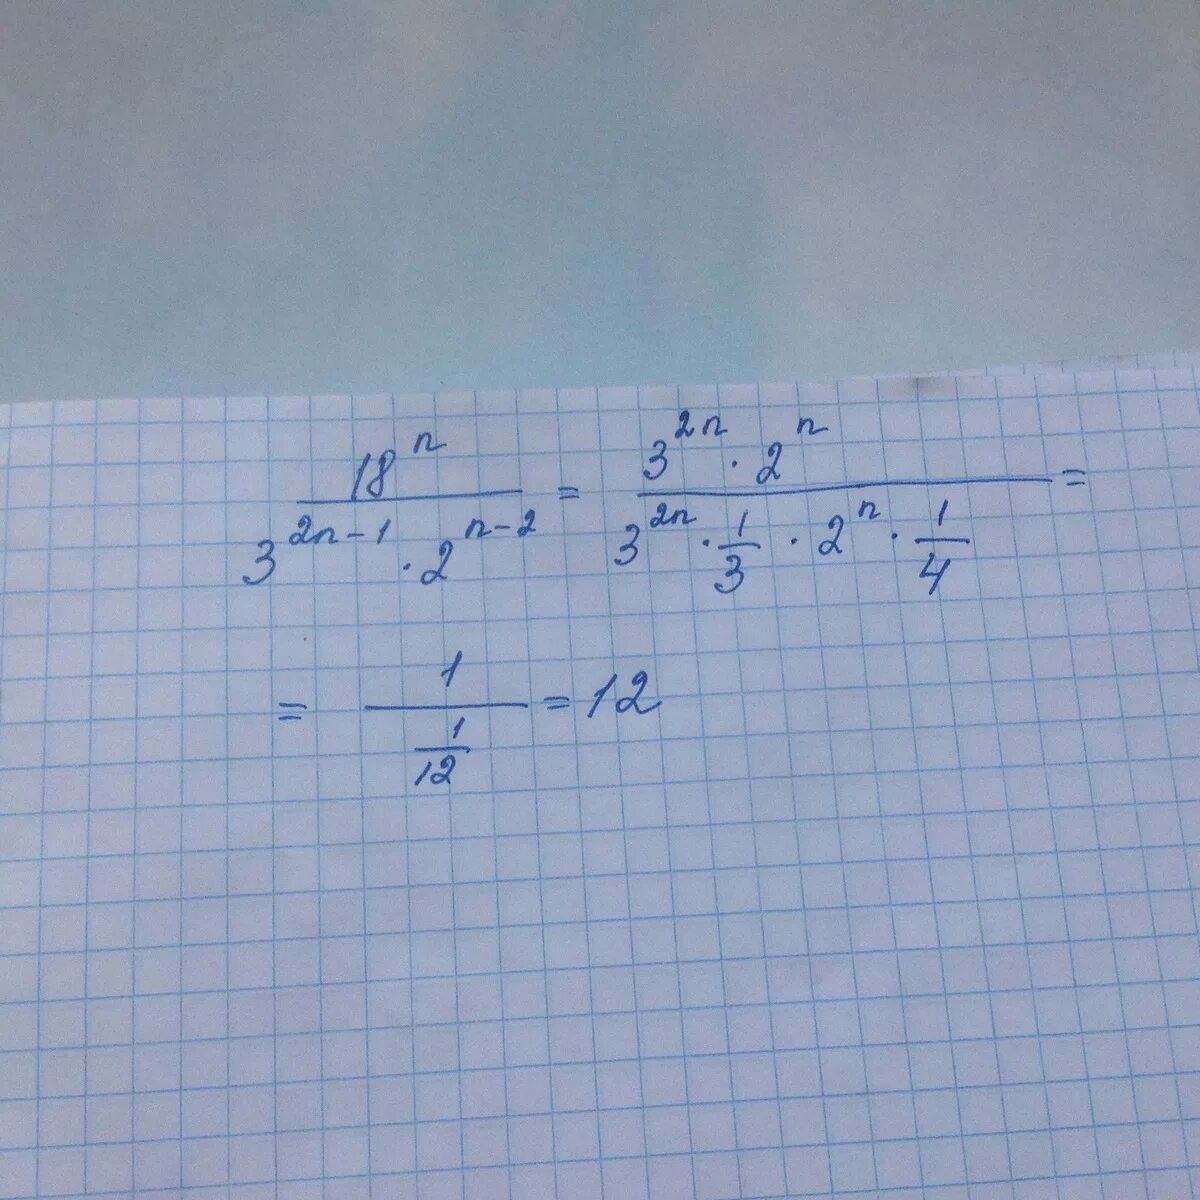 18^n / (3^(2n-1) · 2^(n-2)) = (3^(2n) · 2^n) / (3^(2n) · 1/3 · 2^n · 1/4) =
= 1 / (1/12) = 12